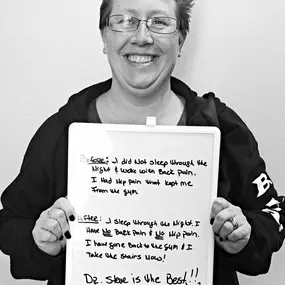 Before: I did Not sleep through the
Night & woke with Back pain.
I Had Hip pain that kept me
From the gym
After: I sleep through the Night. I
Have No Back pain & No Hip pain.
I have gone Back to the gym & I
Take the Stairs Now!
Dr. Steve is the Best!!